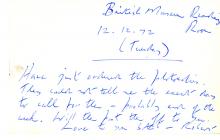 British Museum Reading
Room
12.12.72
(Tuesday)
Have just ordered the photostats.
They could not tell me the exact day
to call for them - probably end of the
week. Will then post them off to you.
Love to you both -